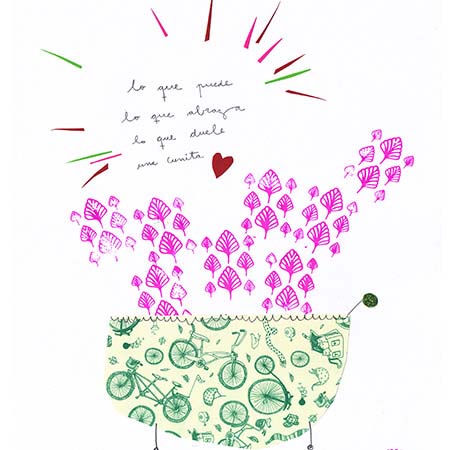 lo que puede
lo que abraza
lo que duele
una cunita